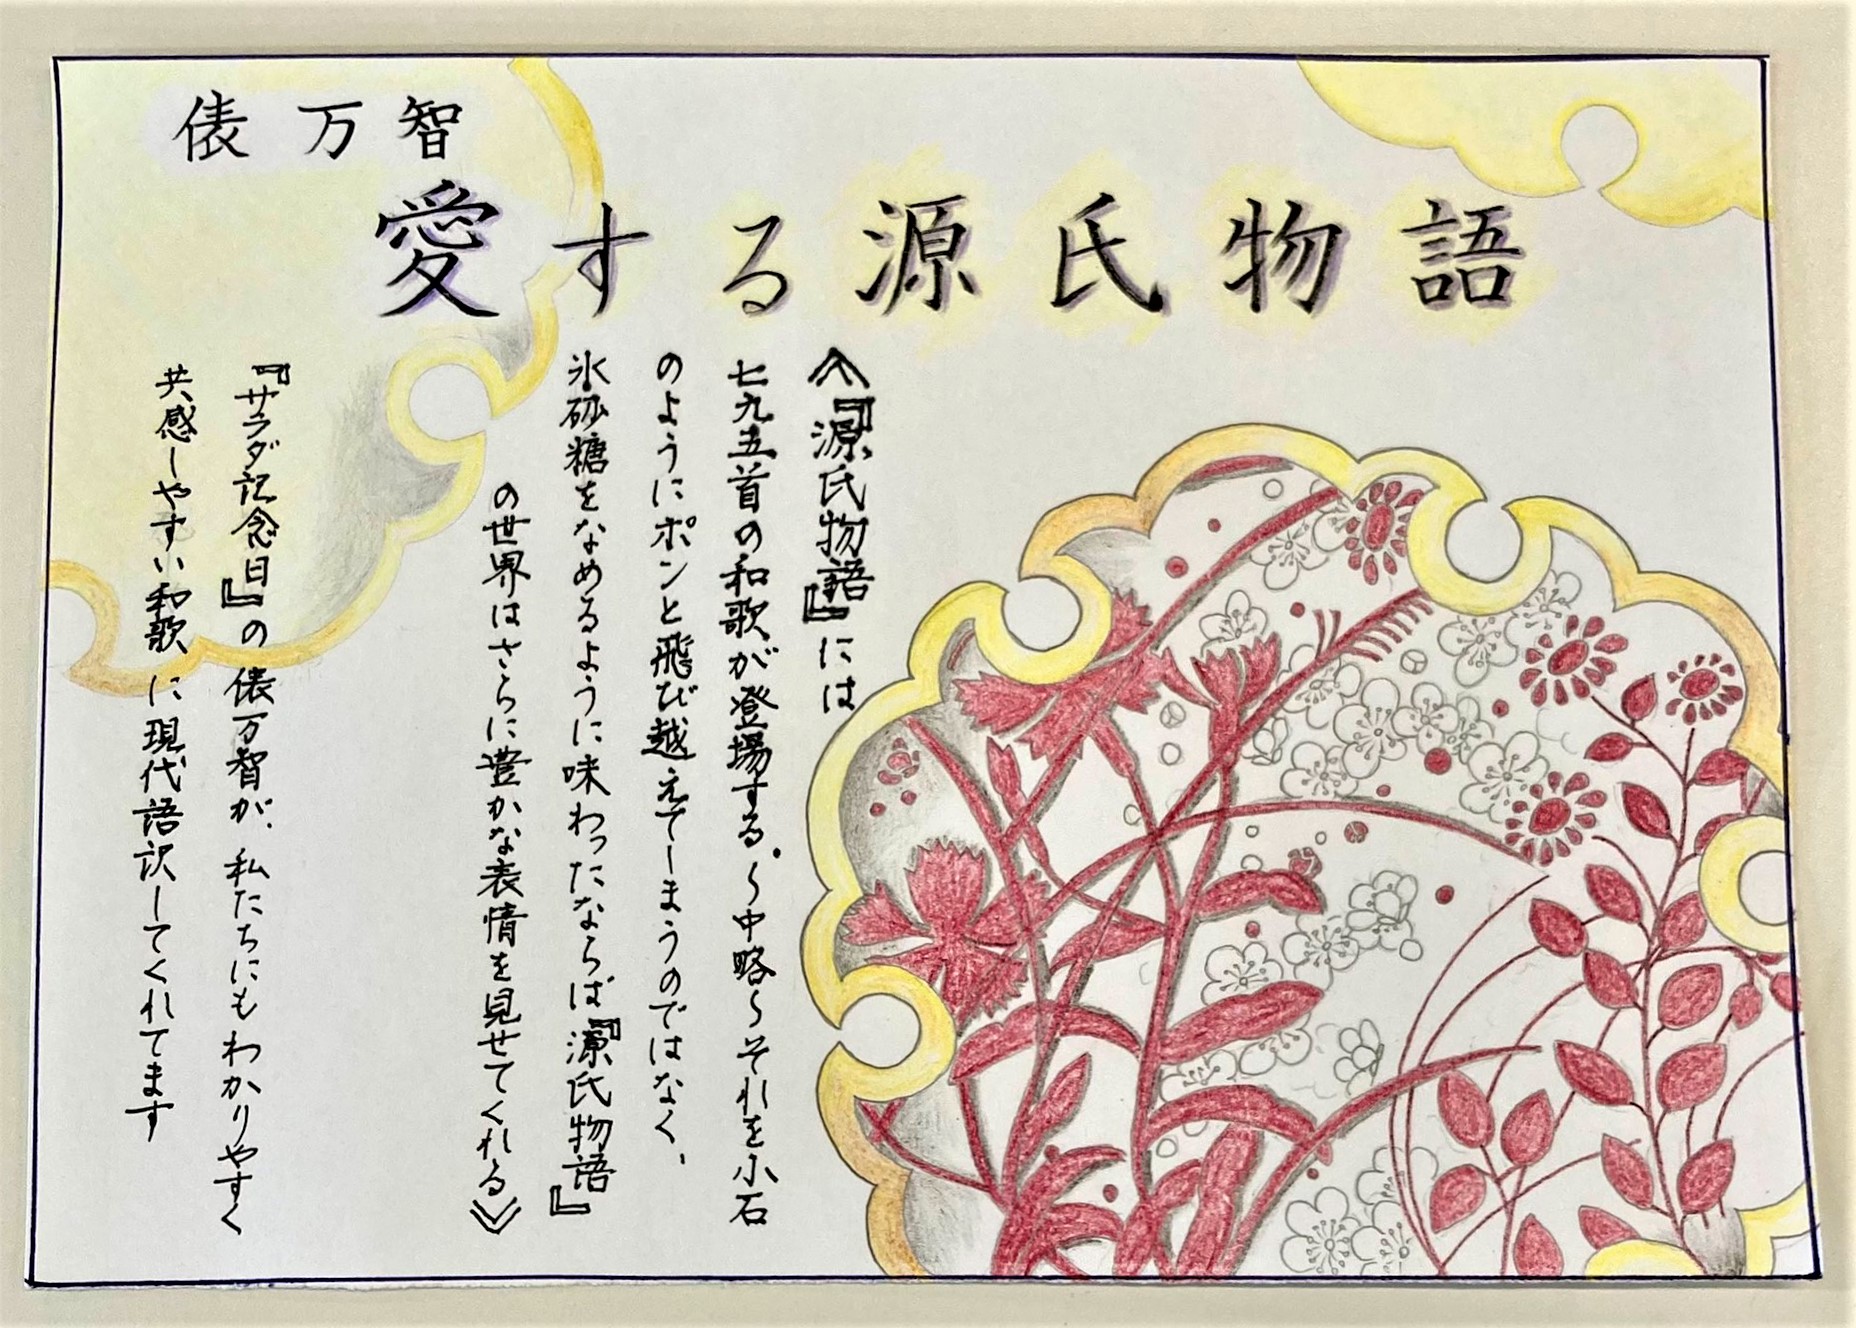 俵万智
愛する源氏物語
《『源氏物語』には
七九五首の和歌が登場する。～中略～それを小石
のようにポンと飛び越えてしまうのではなく、
氷砂糖をなめるように味わったならば『源氏物語』
の世界はさらに豊かな表情を見せてくれる》
『サラダ記念日』の俵万智が、私たちにもわかりやすく
共感しやすい和歌に現代語訳してくれてます